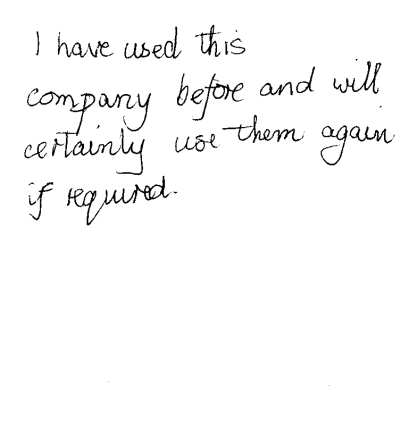 I have used this
company before and will
certainly use them again
if required.